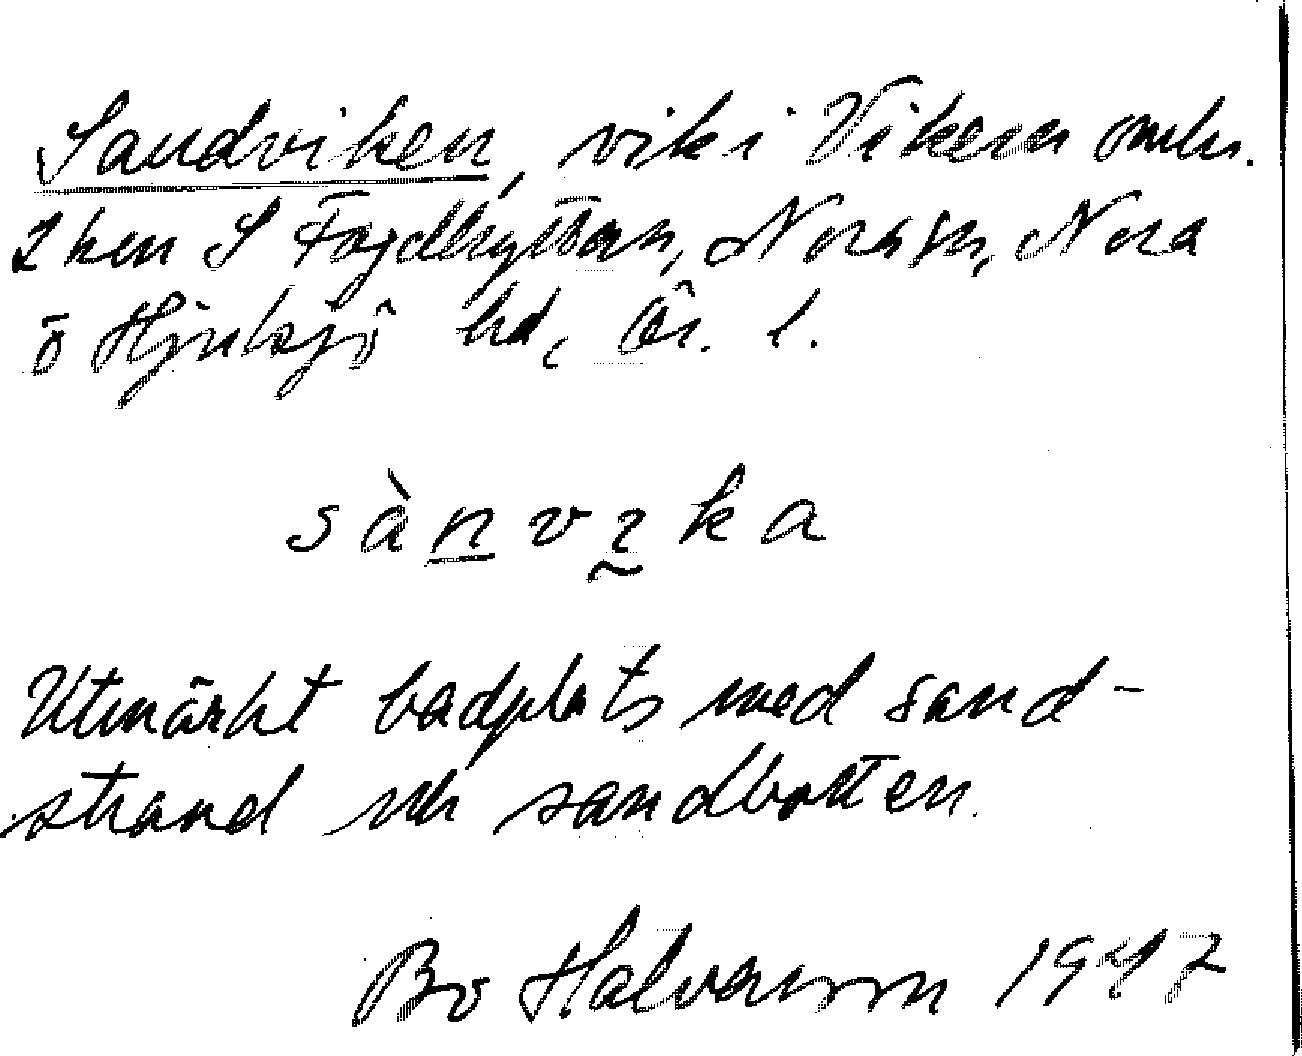 Sandviken, vik i Vikern omkr.
2 km S Fogdhyttan, Nora sn, Nora
o Hjulsjö hd, Ör. l.
sànvıka
Utmärkt badplats med sand-
strand och sandbotten.
Bo Halvarsson 1947